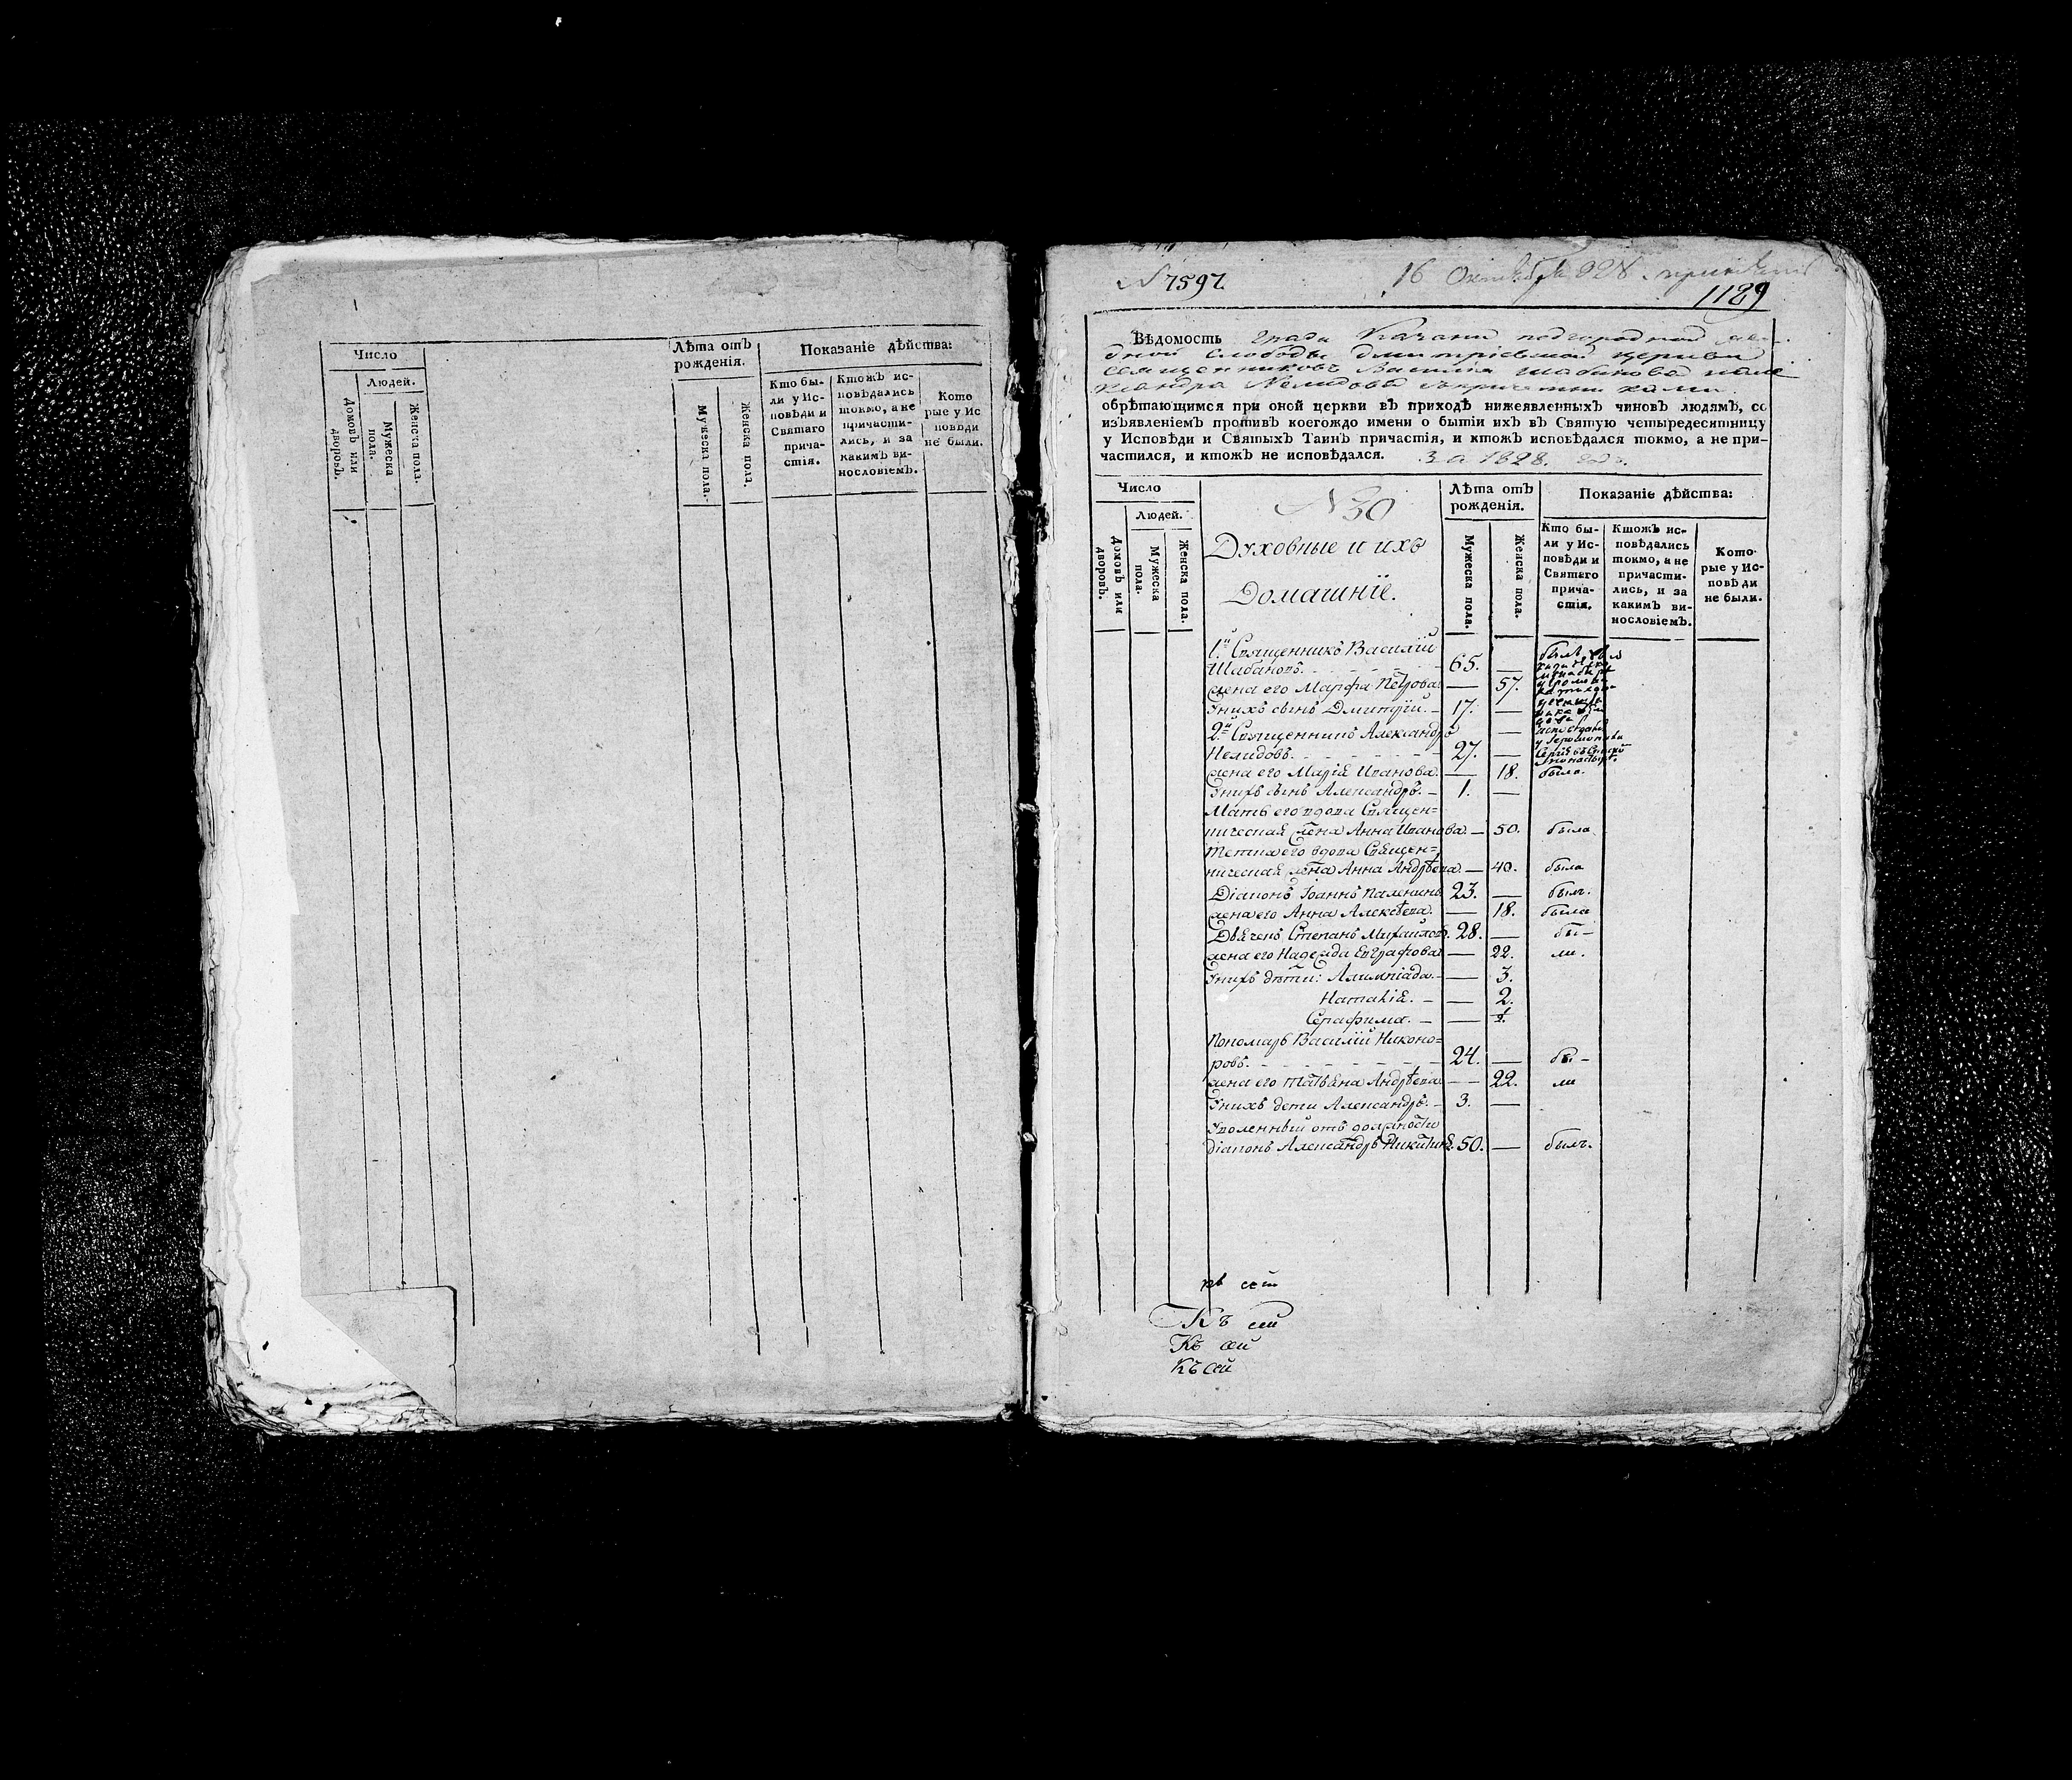 Число
Людей.
Домовъ или дворовъ.
Мужеска пола.
Женска пола.
Лѣта отъ
рожденія.
Мужеска пола.
Женска пола.
Показаніе дѣйства:
Кто бы-
ли у Ис-
повѣди и
Святаго
прича-
стія.
Ктожъ ис-
повѣдались
токмо, а не
причасти-
лись, и за
какимъ ви-
нословіемъ.
Кото
рые у Ис
повѣди
не были.
№ 7597.
16 Октября 828
1189
Вѣдомость града Казани подгородной
слободы Дмитріевской церкви
священниковъ Василія Шабанова и Але
ксандра Нелидова съ причетниками
обрѣтающимся при оной церкви въ приходѣ нижеявленныхъ чиновъ людямъ, со
изъявленіемъ противъ коегождо имени о бытіи ихъ въ Святую четыредесятницу
у Исповѣди и Святыхъ Таинъ причастія, и ктожъ исповѣдался токмо, а не при-
частился, и ктожъ не исповѣдался. За 1828. годъ.
Число
Людей.
Домовъ или дворовъ.
Мужеска пола.
Женска пола.
N 30
Духовные и ихъ
Домашніе.
Лѣта отъ
рожденія.
Мужеска пола.
Женска пола.
Показаніе дѣйства:
Кто бы-
ли у Ис-
повѣди и
Святаго
прича-
стія.
Ктожъ ис-
повѣдались
токмо, а не
причасти-
лись, и за
какимъ ви-
нословіемъ.
Кото-
рые у Ис-
повѣди
не были.
1.й Священникъ Василій
Шабановъ. 65. —
жена его Марфа Петрова — 57.
У нихъ сынъ Дмитрій. 17. —
2.й Священникъ Александръ —
Нелидовъ. 27. —
жена его Марія Иванова. — 18. была.
У нихъ сынъ Александръ. 1. —
Мать его вдова Священ=
ническая жена Анна Иванова. — 50. была
Тетка его вдова Священ=
ническая жена Анна Андрѣева. — 40. была
Діаконъ Іоаннъ Паленинъ 23. — былъ.
жена его Анна Алексѣева. — 18. была
Дьячекъ Степанъ Михайлов. 28. — бы-
жена его Надежда Евграфова — 22. ли.
У нихъ дѣти: Алимпіада. — 3.
Наталія. — 2.
Серафима. — ½.
Пономарь Василій Никоно=
ровъ. 24. — бы-
жена его Татьяна Андрѣева — 22. ли
У нихъ дети Александръ. 3. —
Уволенный отъ должности
діаконъ Александръ Никитинъ. 50. — былъ.
къ сей
Къ сей
Къ сей
Къ сей